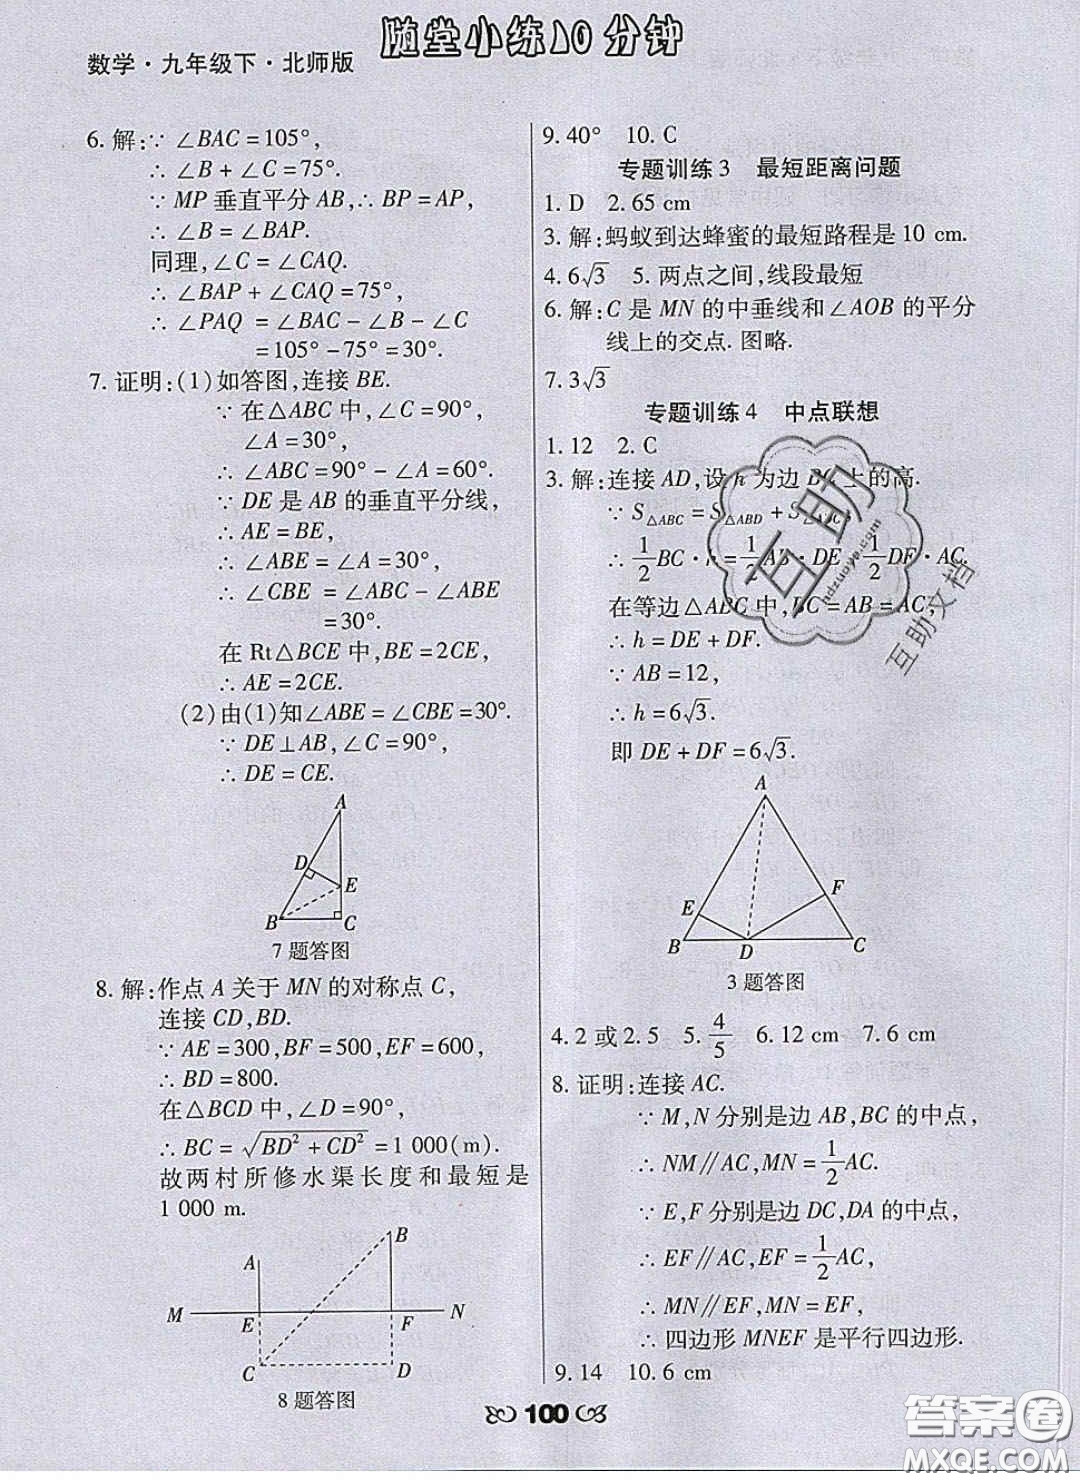 数学·九年级下·北师版
随堂小练10分钟
6. 解:∵ ∠BAC=105°,
∴ ∠B+∠C=75°.
∵ MP 垂直平分 AB,∴ BP=AP,
∴ ∠B=∠BAP.
同理,∠C=∠CAQ.
∴ ∠BAP+∠CAQ=75°,
∴ ∠PAQ =∠BAC-∠B-∠C
=105°-75°=30°.
7. 证明:(1)如答图,连接 BE.
∵ 在△ABC 中,∠C=90°,
∠A=30°,
∴ ∠ABC=90°-∠A=60°.
∵ DE 是 AB 的垂直平分线,
∴ AE=BE,
∴ ∠ABE=∠A=30°,
∴ ∠CBE =∠ABC-∠ABE
=30°.
在 Rt△BCE 中,BE=2CE,
∴ AE=2CE.
(2)由(1)知∠ABE=∠CBE=30°.
∵ DE⊥AB,∠C=90°,
∴ DE=CE.
A
D
E
B
C
7 题答图
8. 解:作点 A 关于 MN 的对称点 C,
连接 CD,BD.
∵ AE=300,BF=500,EF=600,
∴ BD=800.
在△BCD 中,∠D=90°,
∴ BC=√(BD²+CD²)=1 000(m).
故两村所修水渠长度和最短是
1 000 m.
B
A
M
E
F
N
C
D
8 题答图
9. 40° 10. C
专题训练3 最短距离问题
1. D 2. 65 cm
3. 解:蚂蚁到达蜂蜜的最短路程是 10 cm.
4. 6√3 5. 两点之间,线段最短
6. 解:C 是 MN 的中垂线和∠AOB 的平分
线上的交点. 图略.
7. 3√3
专题训练4 中点联想
1. 12 2. C
3. 解:连接 AD,设 h 为边 BC 上的高.
∵ S△ABC=S△ABD+S△ADC,
∴ 1/2 BC·h=1/2 AB·DE+1/2 DF·AC.
在等边△ABC 中,BC=AB=AC,
∴ h=DE+DF.
∵ AB=12,
∴ h=6√3.
即 DE+DF=6√3.
A
F
E
B
D
C
3 题答图
4. 2 或 2.5 5. 4/5 6. 12 cm 7. 6 cm
8. 证明:连接 AC.
∵ M,N 分别是边 AB,BC 的中点,
∴ NM∥AC,MN=1/2 AC.
∵ E,F 分别是边 DC,DA 的中点,
∴ EF∥AC,EF=1/2 AC,
∴ MN∥EF,MN=EF,
∴ 四边形 MNEF 是平行四边形.
9. 14 10. 6 cm
100
互助
hdzuoye.com
互助文档
答案圈
MXQE.COM